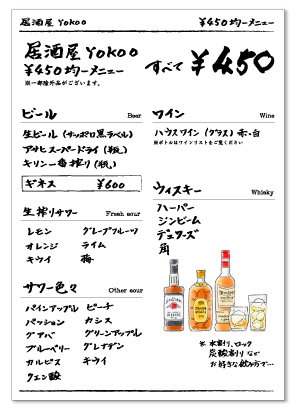 居酒屋 Yokoo
¥450均一メニュー
居酒屋 Yokoo
¥450均一メニュー
※一部除外品がございます。
すべて ¥450
ビール Beer
生ビール (サッポロ黒ラベル)
アサヒスーパードライ (中瓶)
キリン一番搾り (中瓶)
ギネス ¥600
生搾りサワー Fresh sour
レモン グレープフルーツ
オレンジ ライム
キウイ 梅
サワー色々 Other sour
パインアップル ピーチ
パッション カシス
グアバ グリーンアップル
ブルーベリー グレナデン
カルピス キウイ
クエン酸
ワイン Wine
ハウスワイン (グラス) 赤・白
※ボトルはワインリストをご覧ください
ウィスキー Whisky
ハーパー
ジンビーム
デュワーズ
角
※ 水割り、ロック
炭酸割り など
お好きな飲み方で…